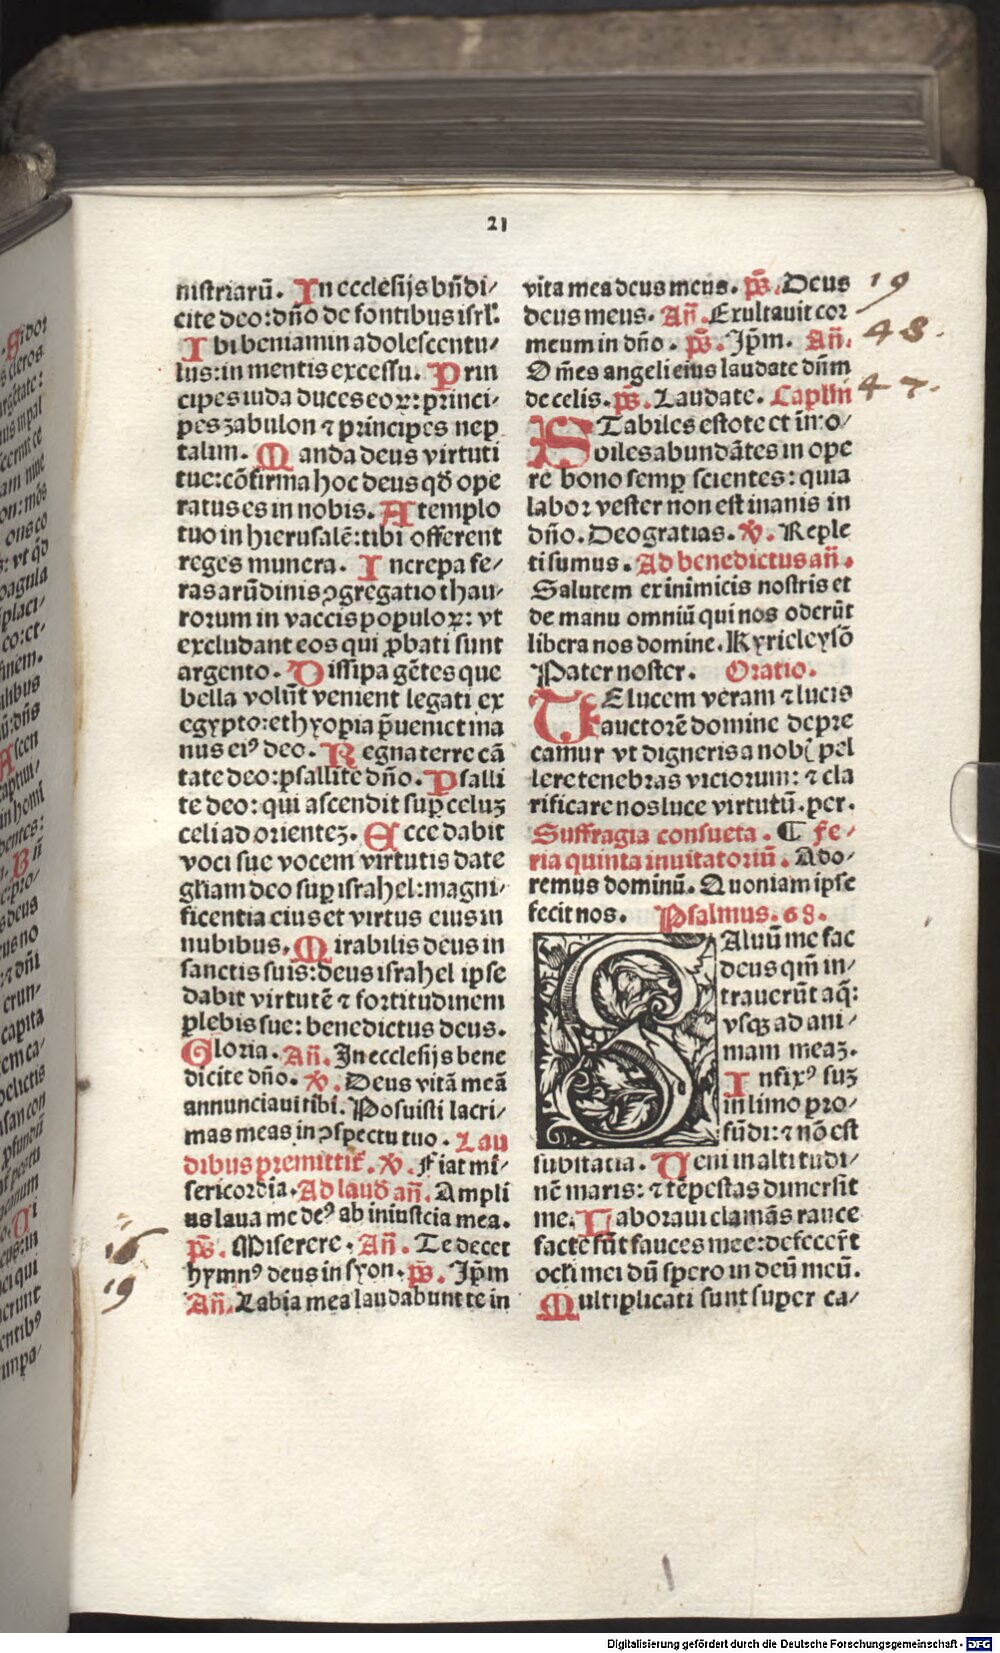 21
nistriarū. In ecclesijs bn̄di/
cite deo: dn̄o de fontibus isrl'.
Ibi beniamin adolescentu/
lus: in mentis excessu. Prin
cipes iuda duces eoꝝ: princi/
pes zabulon ⁊ principes nep
talim. Manda deus virtuti
tue: cōfirma hoc deus qđ ope
ratus es in nobis. A templo
tuo in hierusalē: tibi offerent
reges munera. Increpa fe/
ras arūdinis ꝯgregatio thau/
rorum in vaccis populoꝝ: vt
excludant eos qui ꝓbati sunt
argento. Dissipa gētes que
bella volūt venient legati ex
egypto: ethyopia p̄ueniet ma
nus eiꝰ deo. Regna terre cā
tate deo: psallite dn̄o. Psalli
te deo: qui ascendit suꝑ celuꝫ
celi ad orienteꝫ. Ecce dabit
voci sue vocem virtutis date
gl'iam deo suꝑ israhel: magni/
ficentia eius et virtus eius in
nubibus. Mirabilis deus in
sanctis suis: deus israhel ipse
dabit virtutē ⁊ fortitudinem
plebis sue: benedictus deus.
Gloria. An̄. In ecclesijs bene
dicite dn̄o. ℣. Deus vitā meā
annunciaui tibi. Posuisti lacri/
mas meas in ꝯspectu tuo. Lau
dibus premittit'. ℣. Fiat mi/
sericordia. Ad laud' an̄. Ampli
us laua me deꝰ ab iniusticia mea.
16 ps̄. Miserere. An̄. Te decet
hymnꝰ deus in syon. ps̄. Ip̄m
19 An̄. Labia mea laudabunt te in
vita mea deus meus. ps̄. Deus 19
deus meus. An̄. Exultauit cor
meum in dn̄o. ps̄. Ip̄m. An̄. 48.
Om̄es angeli eius laudate dn̄m
de celis. ps̄. Laudate. Capl'm 47.
Stabiles estote et īmo/
biles abundātes in ope
re bono semꝑ scientes: quia
labor vester non est inanis in
dn̄o. Deo gratias. ℣. Reple
ti sumus. Ad benedictus an̄.
Salutem ex inimicis nostris et
de manu omniū qui nos oderūt
libera nos domine. Kyrieleysō
Pater noster. Oratio.
Te lucem veram ⁊ lucis
auctorē domine depre
camur vt digneris a nobis pel
lere tenebras viciorum: ⁊ cla
rificare nos luce virtutū. per.
Suffragia consueta. ¶ Fe/
ria quinta inuitatoriū. Ado/
remus dominū. Quoniam ipse
fecit nos. Psalmus. 68.
Saluū me fac
deus qm̄ in/
trauerūt aq̄:
vsqꝫ ad ani/
mam meaꝫ.
Infixꝰ suꝫ
in limo pro/
fūdi: ⁊ nō est
substatia. Veni in altitudi/
nē maris: ⁊ tēpestas dimersit
me. Laboraui clamās rauce
facte sūt fauces mee: defecer̄t
ocl'i mei dū spero in deū meū.
Multiplicati sunt super ca/
Digitalisierung gefördert durch die Deutsche Forschungsgemeinschaft - DFG